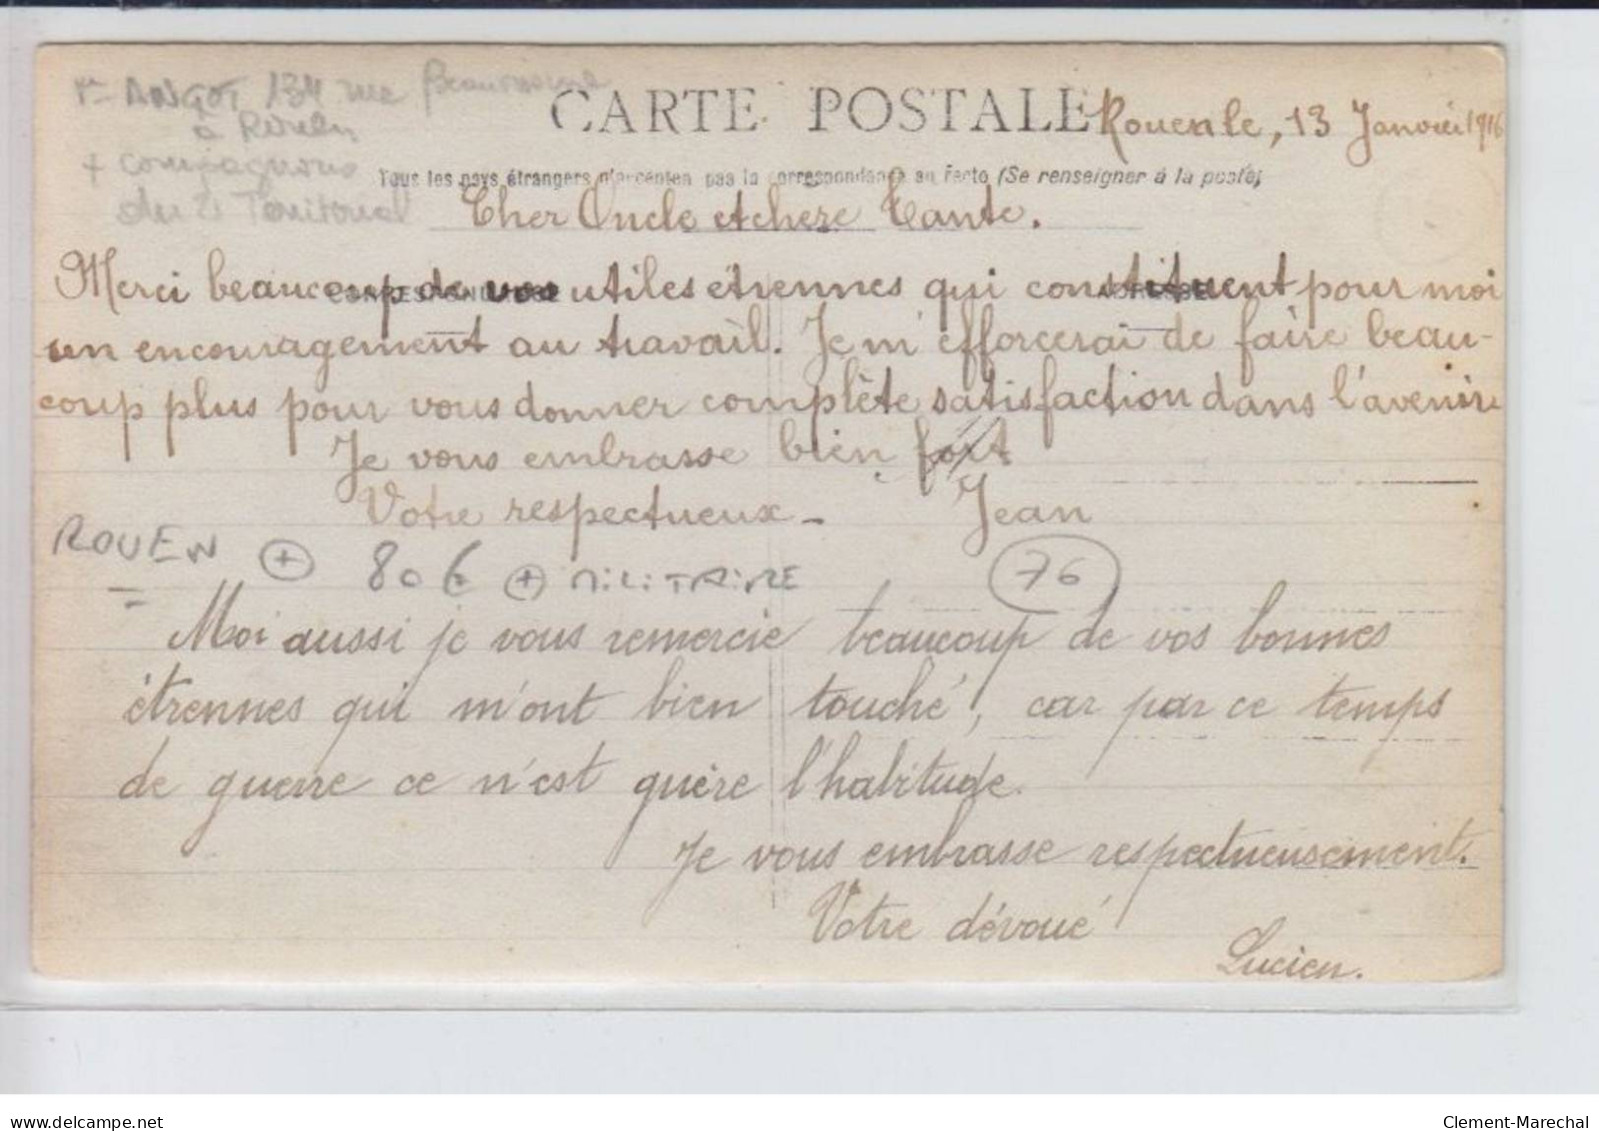 ANGOT 134 rue
à Rouen
+ compagnons
du Territorial
CARTE POSTALE
Rouen le, 13 Janvier 1916
Tous les pays étrangers n'acceptent pas la correspondance au recto (Se renseigner à la poste)
Cher Oncle et chere Tante.
Merci beaucoup de vos utiles étrennes qui constituent pour moi
un encouragement au travail. Je m'efforcerai de faire beau-
coup plus pour vous donner complète satisfaction dans l'avenir
Je vous embrasse bien fort
Votre respectueux - Jean
ROUEN + 806 + MILITAIRE 76
Moi aussi je vous remercie beaucoup de vos bonnes
étrennes qui m'ont bien touché, car par ce temps
de guerre ce n'est guère l'habitude.
Je vous embrasse respectueusement.
Votre dévoué
Lucien.
delcampe.net
Clement-Marechal